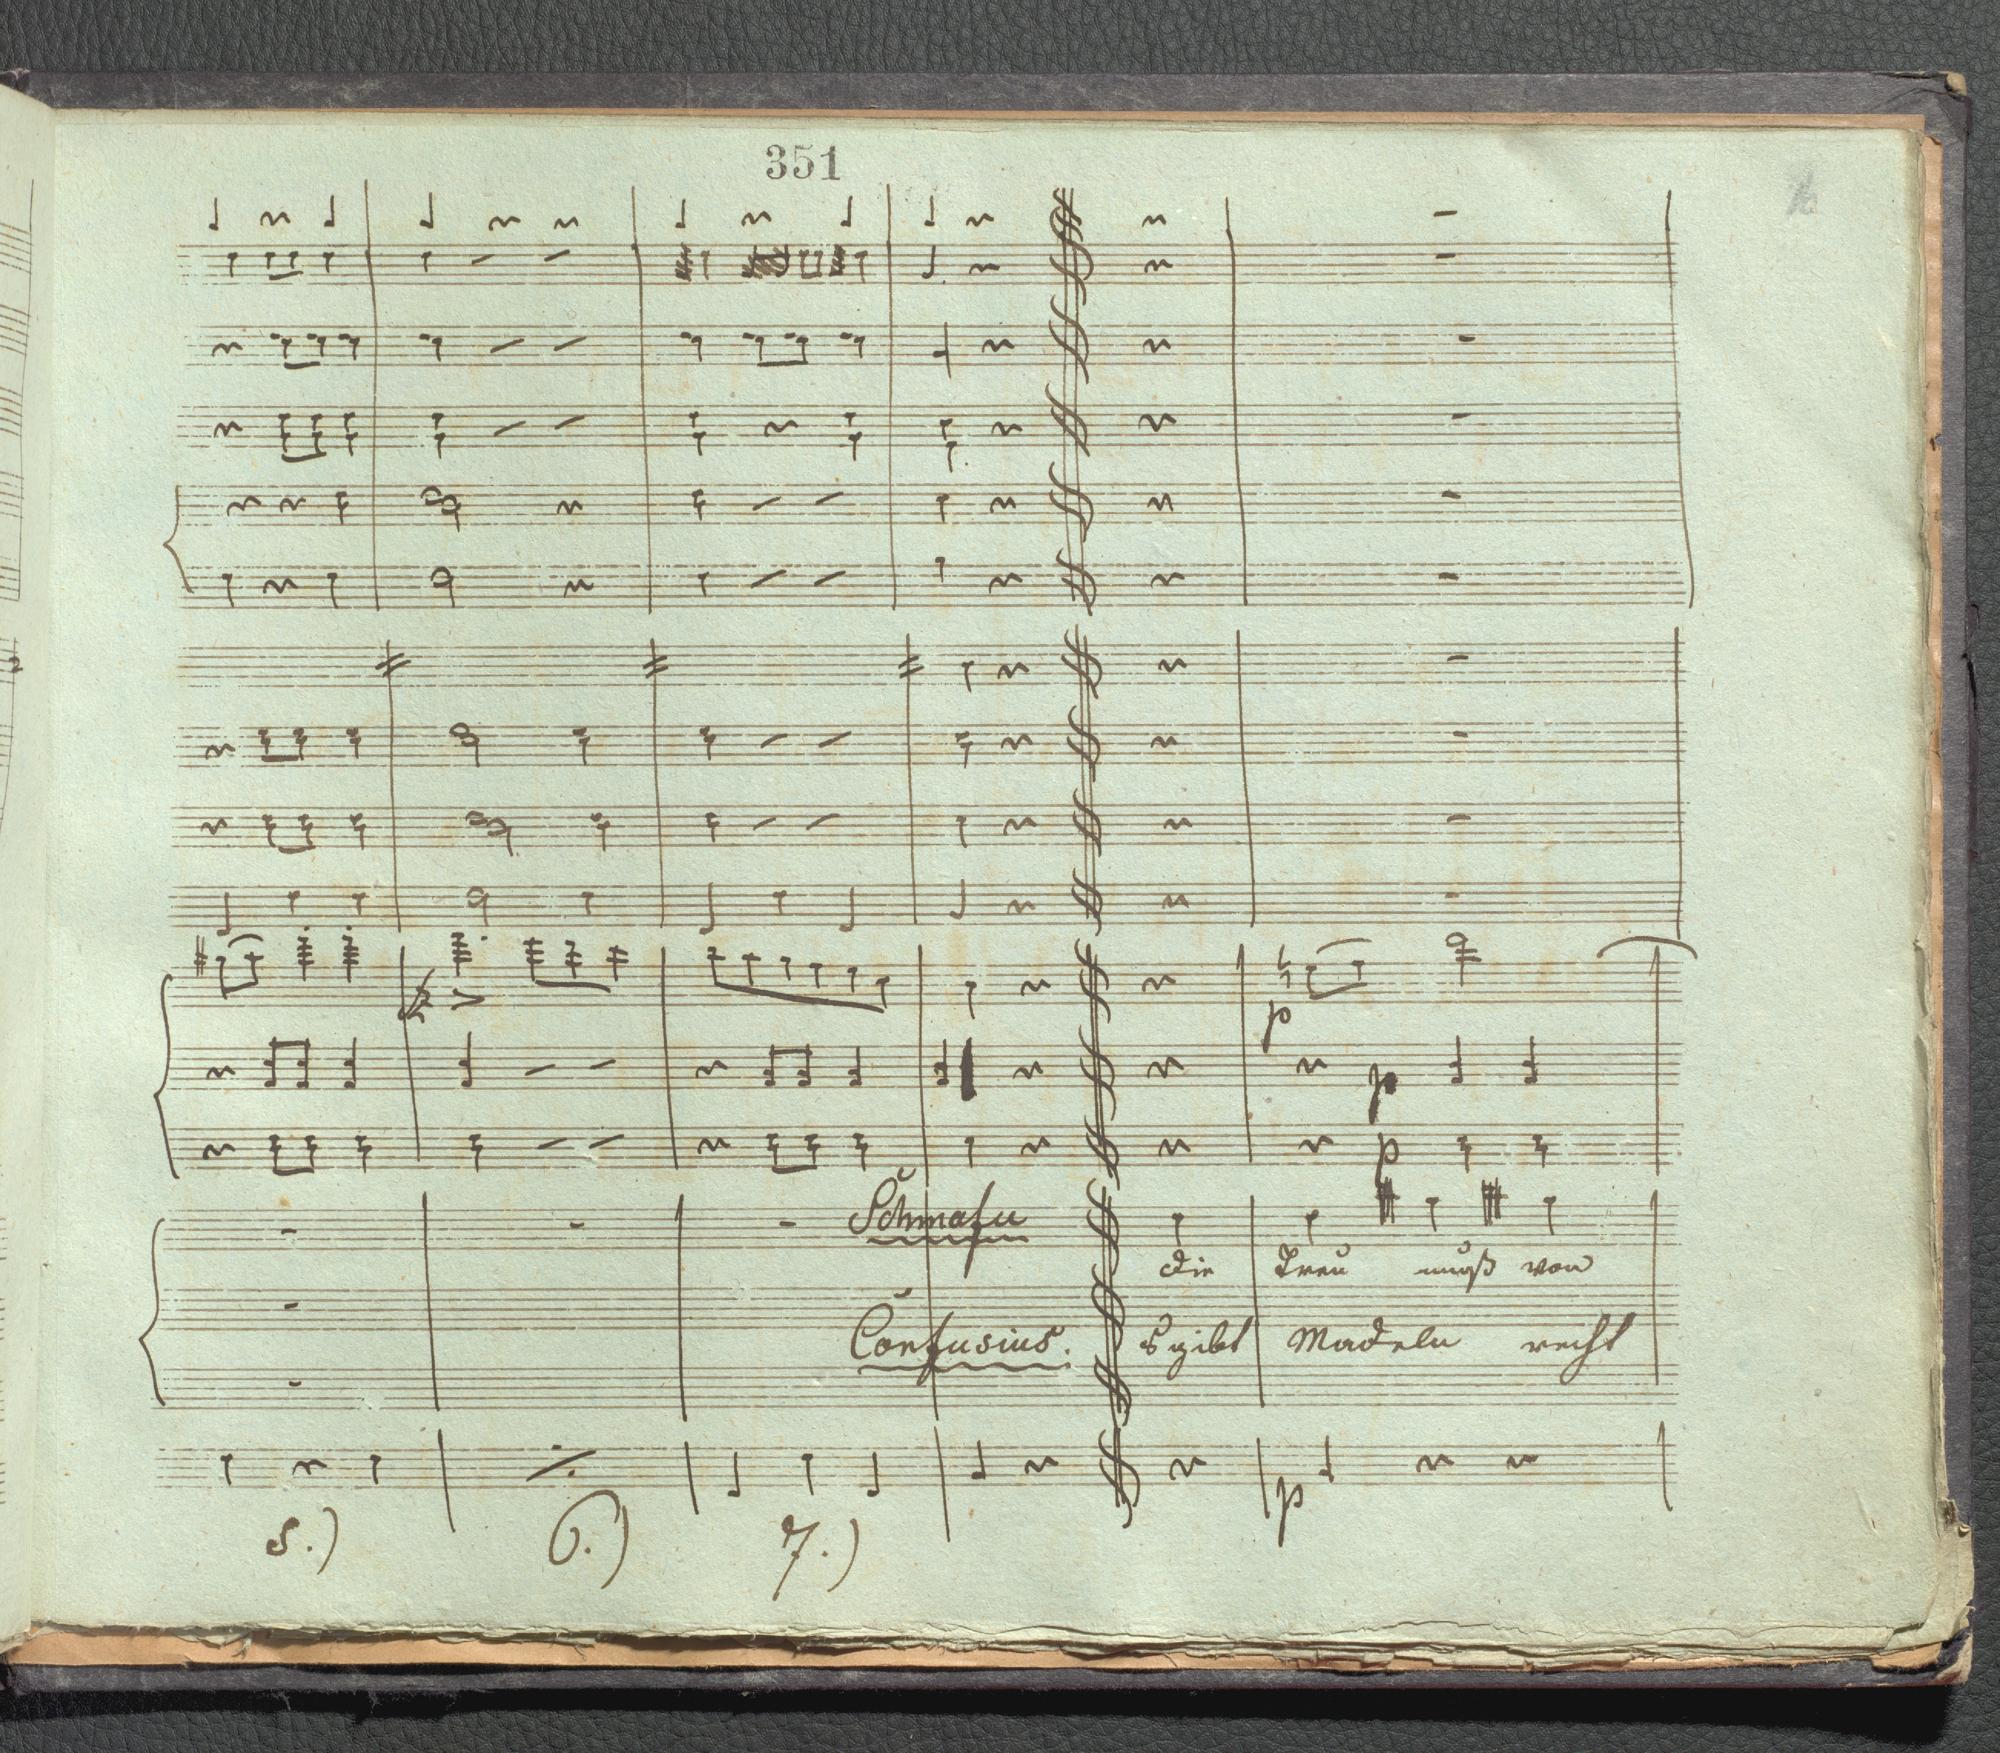 351
p
p
p
Schmafu
die Treu muß von
Confusius. s gibt Madeln recht
p
5.) 6.) 7.)